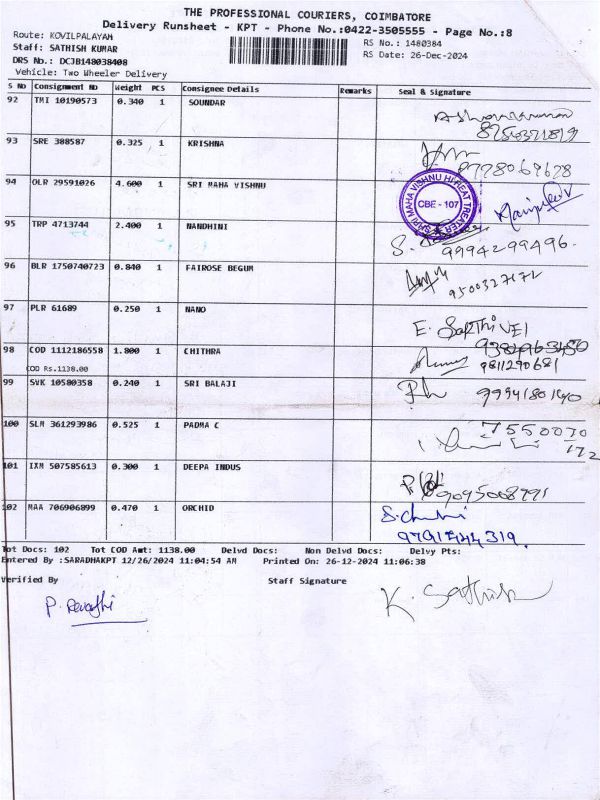 THE PROFESSIONAL COURIERS, COIMBATORE
Delivery Runsheet - KPT - Phone No.:0422-3505555 - Page No.:8
Route: KOVILPALAYAM
RS No.: 1480384
Staff: SATHISH KUMAR
RS Date: 26-Dec-2024
DRS No.: DCJB148038408
Vehicle: Two Wheeler Delivery
S No Consignment No Weight PCS Consignee Details Remarks Seal & Signature
92 TMI 10190573 0.340 1 SOUNDAR
8754371819
93 SRE 388587 0.325 1 KRISHNA
8778069678
94 OLR 29591026 4.600 1 SRI MAHA VISHNU
SHRI MAHA VISHNU HI HEAT TREATER
CBE - 107
95 TRP 4713744 2.400 1 NANDHINI
S.
9994299496.
96 BLR 1750740723 0.840 1 FAIROSE BEGUM
9500327172
97 PLR 61689 0.250 1 NANO
E. SAKTHIVEL
98 COD 1112186558 1.800 1 CHITHRA
9811290681
COD Rs.1138.00
99 SVK 10580358 0.240 1 SRI BALAJI
9994180140
100 SLM 361293986 0.525 1 PADMA C
7550070
172
101 IXM 507585613 0.300 1 DEEPA INDUS
9095008791
102 MAA 706906899 0.470 1 ORCHID
9791744319.
Tot Docs: 102 Tot COD Amt: 1138.00 Delvd Docs: Non Delvd Docs: Delvy Pts:
Entered By :SARADHAKPT 12/26/2024 11:04:54 AM Printed On: 26-12-2024 11:06:38
Verified By Staff Signature
P. Revathi
K. Sathish